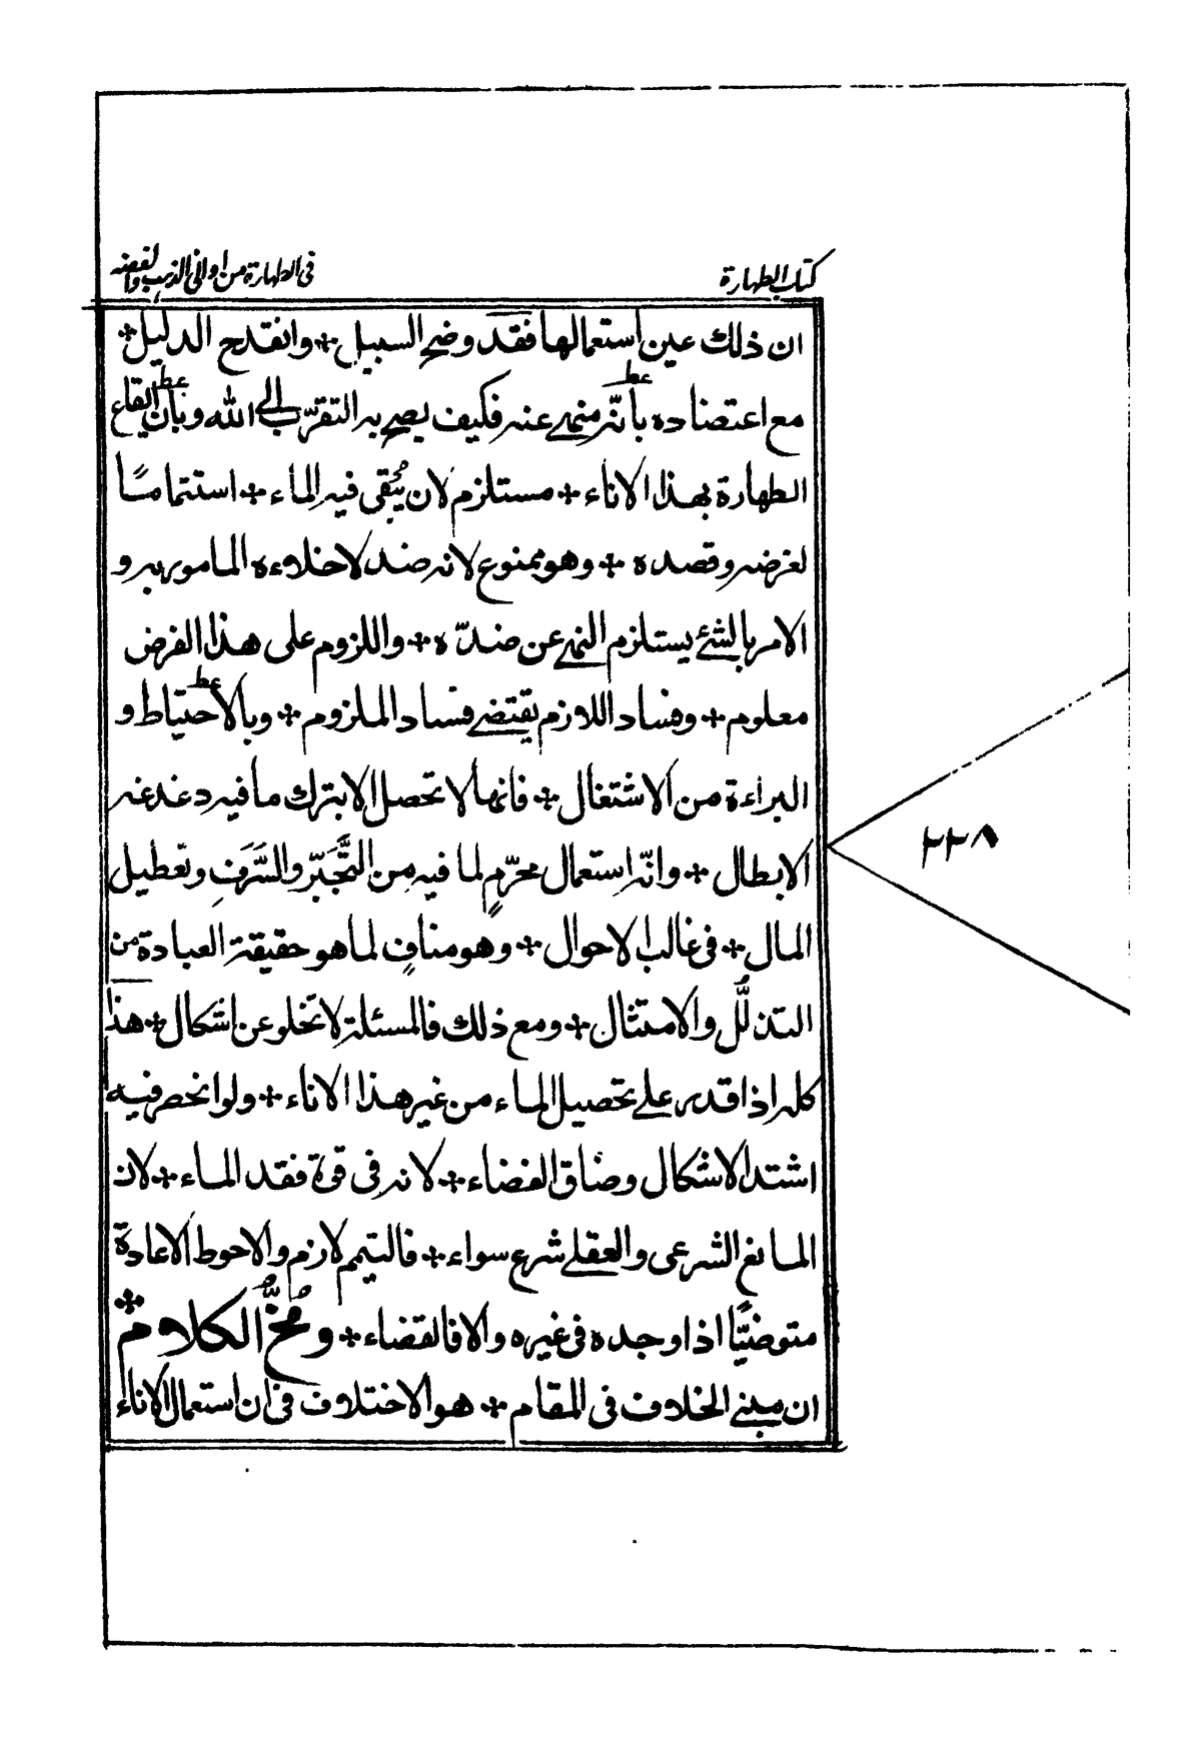 كتاب الطهارة
فى الطهارة من اوانى الذهب والفضه
ان ذلك عين استعمالها فقد وضح السبيل ÷ وانقدح الدليل ÷
مع اعتضاده بأنّه منهى عنه فكيف يصح به التقرّب الى الله وبأن ايقاع
الطهارة بهذا الاناء ÷ مستلزم لان يُبقى فيه الماء ÷ استتمامًا
لغرضه وقصده ÷ وهو ممنوع لانه ضد لاخلاءه المامور به و
الامر بالشئ يستلزم النهى عن ضدّه ÷ واللزوم على هذا الفرض
معلوم ÷ وفساد اللازم يقتضى فساد الملزوم ÷ وبالاحتياط و
البراءة من الاشتغال ÷ فانها لا تحصل الا بترك ما فيه دغدغه
الابطال ÷ وانّه استعمال محرّمٍ لما فيه مِن التَّجَبّرِ والسَّرَفِ وتعطيل
المال ÷ فى غالب الاحوال ÷ وهو منافٍ لما هو حقيقة العبادة من
التذلُّل والامتثال ÷ ومع ذلك فالمسئلة لا تخلو عن اشكال ÷ هذا
كله اذا قدر على تحصيل الماء من غير هذا الاناء ÷ ولو انحصر فيه
اشتد الاشكال وضاق الفضاء ÷ لانه فى قوة فقد الماء ÷ لان
المانع الشرعى والعقلى شرع سواء ÷ فالتيمم لازم والاحوط الاعادة
متوضيًّا اذا وجده فى غيره والا فالقضاء ÷ ومُخُّ الكلام ÷
ان مبنى الخلاف فى المقام ÷ هو الاختلاف فى ان استعمال الاناء
٢٢٨